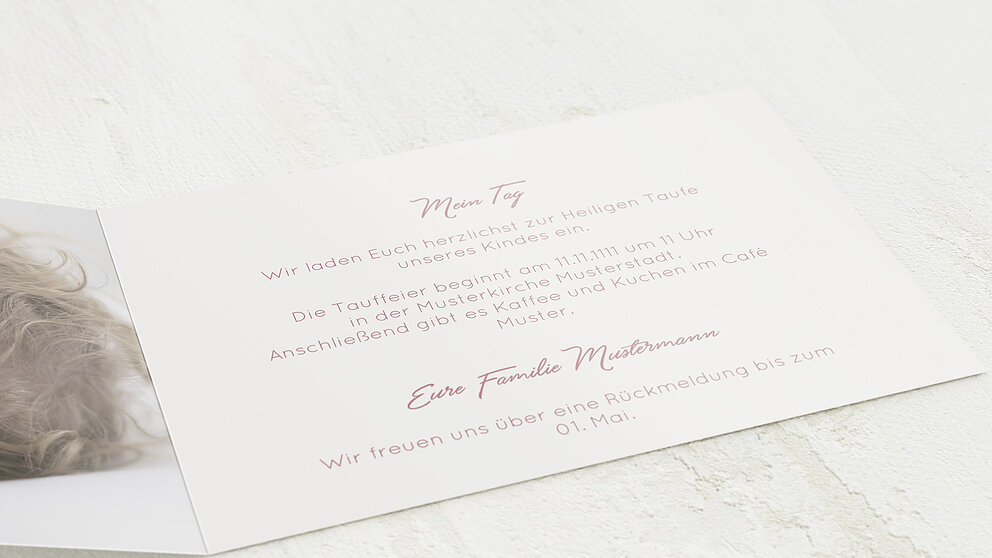 Mein Tag
Wir laden Euch herzlichst zur Heiligen Taufe
unseres Kindes ein.
Die Tauffeier beginnt am 11.11.1111 um 11 Uhr
in der Musterkirche Musterstadt.
Anschließend gibt es Kaffee und Kuchen im Café
Muster.
Eure Familie Mustermann
Wir freuen uns über eine Rückmeldung bis zum
01. Mai.